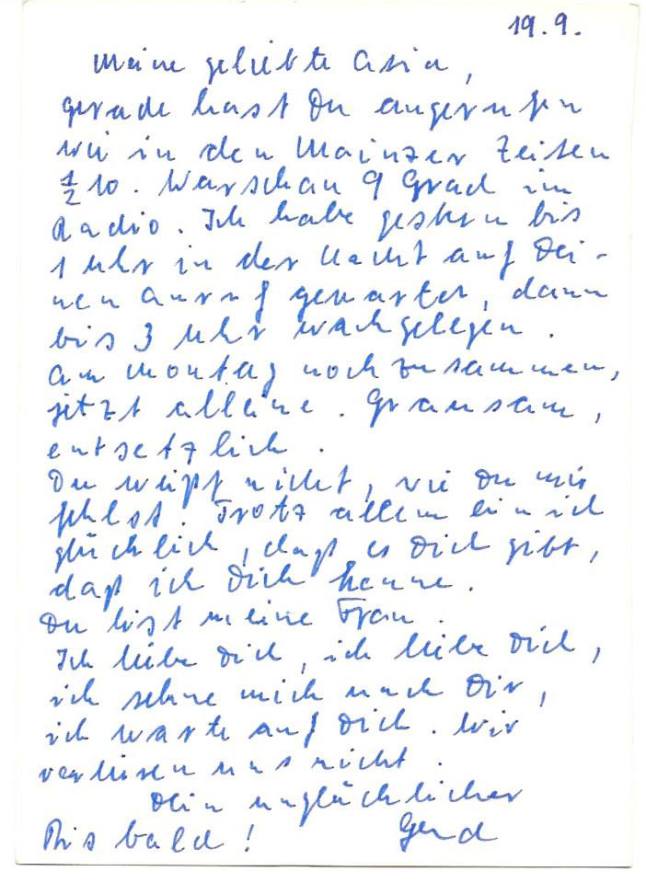 19.9.
Meine geliebte Asia,
gerade hast Du angerufen
wie in den Mainzer Zeiten
½ 10. Warschau 9 Grad im
Radio. Ich habe gestern bis
1 Uhr in der Nacht auf Dei-
nen Anruf gewartet, dann
bis 3 Uhr wachgelegen.
Am Montag noch zusammen,
jetzt alleine. Grausam,
entsetzlich.
Du weißt nicht, wie Du mir
fehlst. Trotz allem bin ich
glücklich, daß es Dich gibt,
daß ich Dich kenne.
Du bist meine Frau.
Ich liebe Dich, ich liebe Dich,
ich sehne mich nach Dir,
ich warte auf Dich. Wir
verlieren uns nicht.
Dein unglücklicher
Bis bald! Gerd